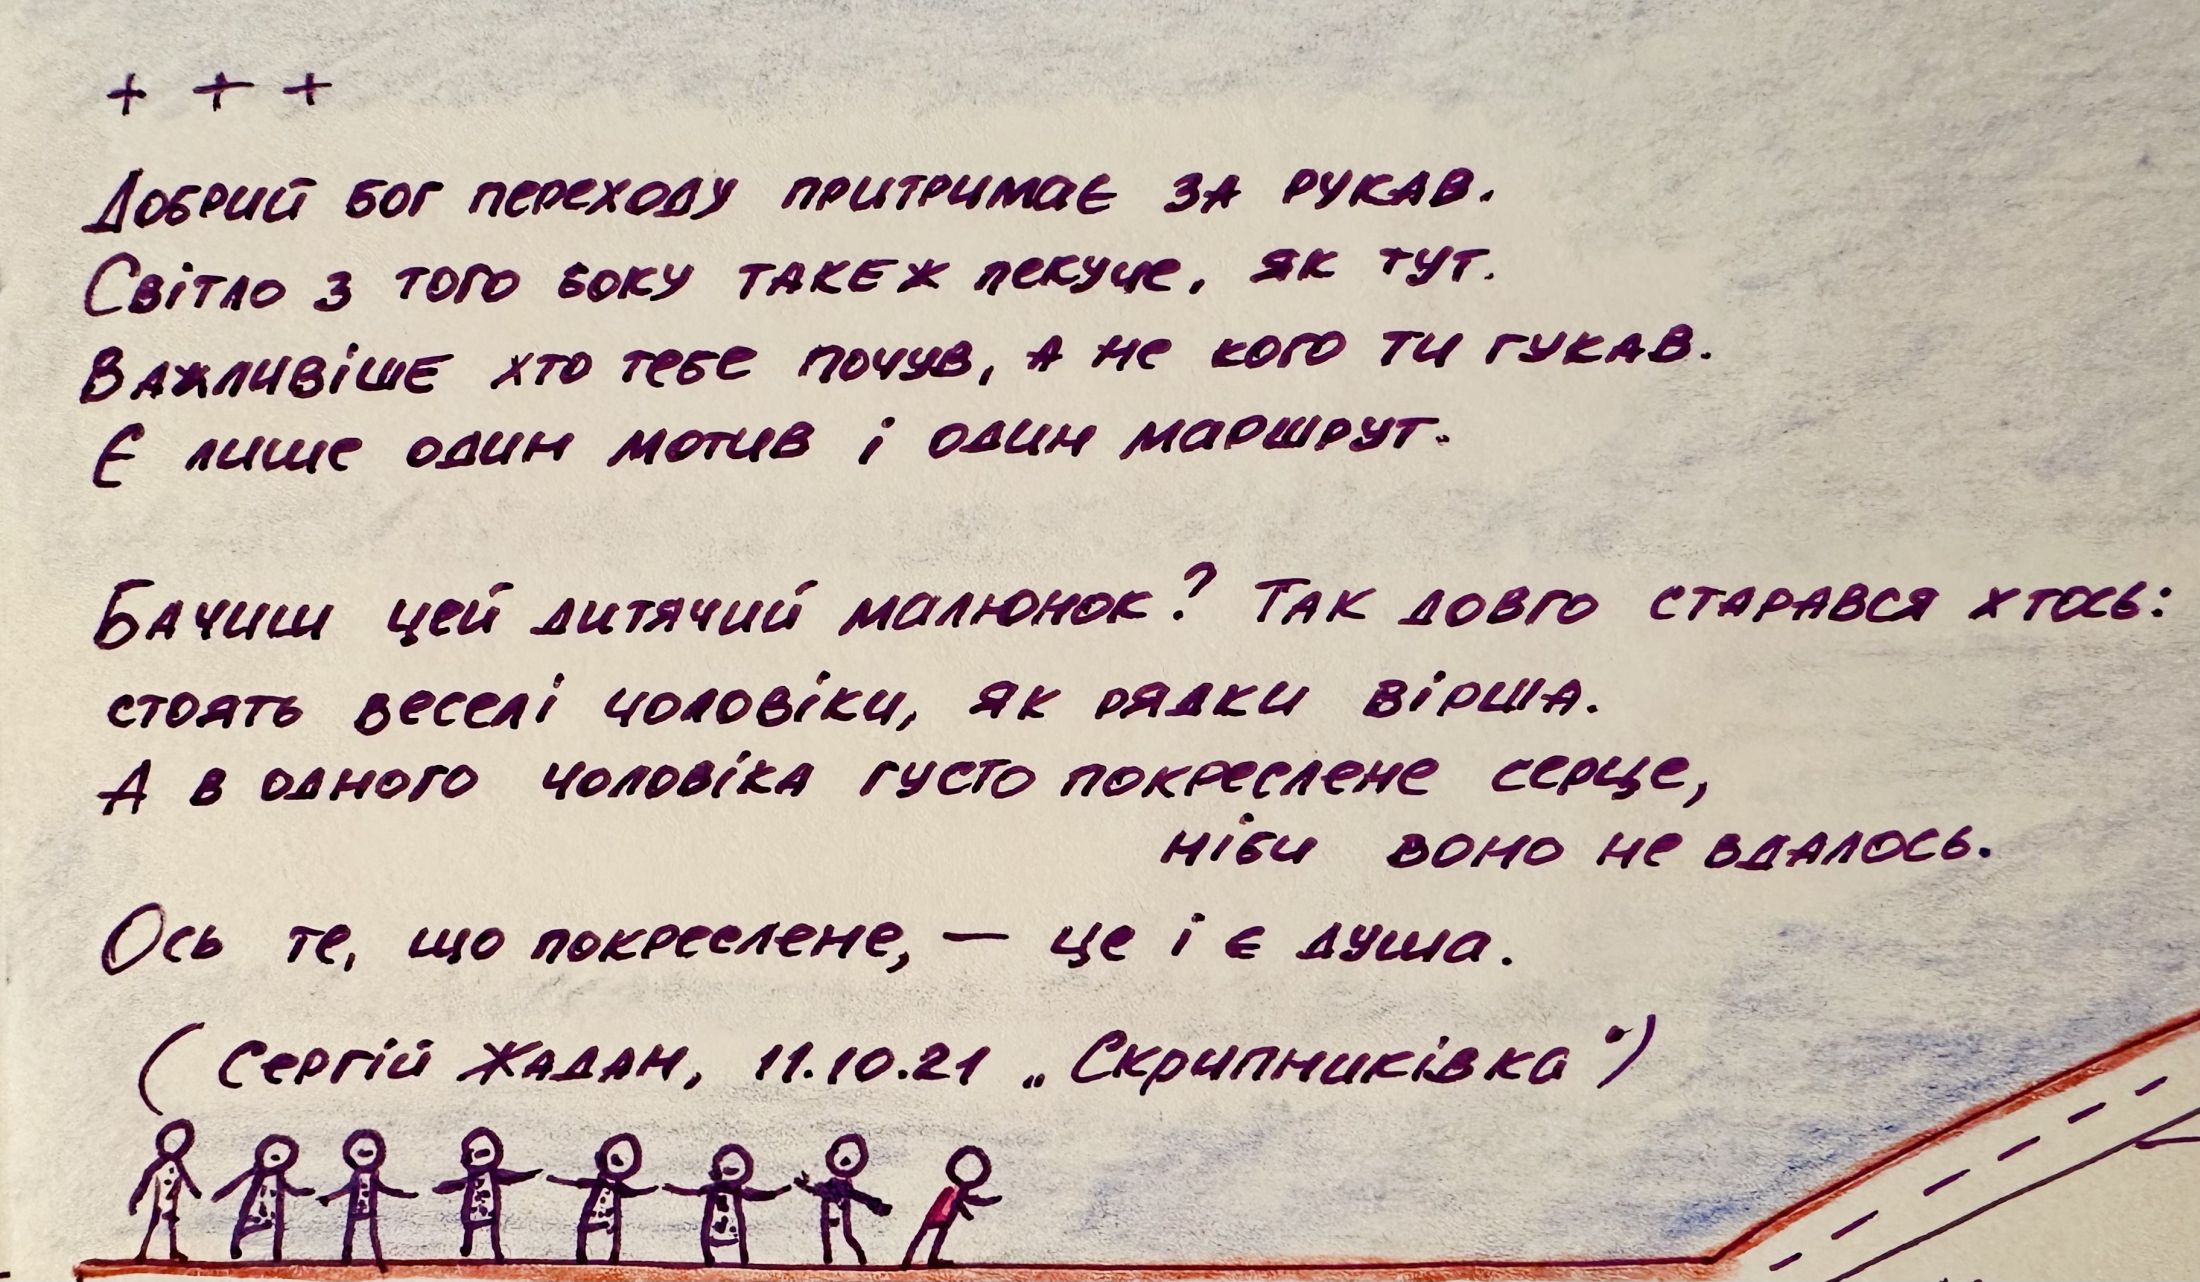 + + +
Добрий бог переходу притримає за рукав.
Світло з того боку такеж пекуче, як тут.
Важливіше хто тебе почув, а не кого ти гукав.
Є лише один мотив і один маршрут.
Бачиш цей дитячий малюнок? Так довго старався хтось:
стоять веселі чоловіки, як рядки вірша.
А в одного чоловіка густо покреслене серце,
ніби воно не вдалось.
Ось те, що покреслене, — це і є душа.
(Сергій Жадан, 11.10.21 „Скрипниківка")